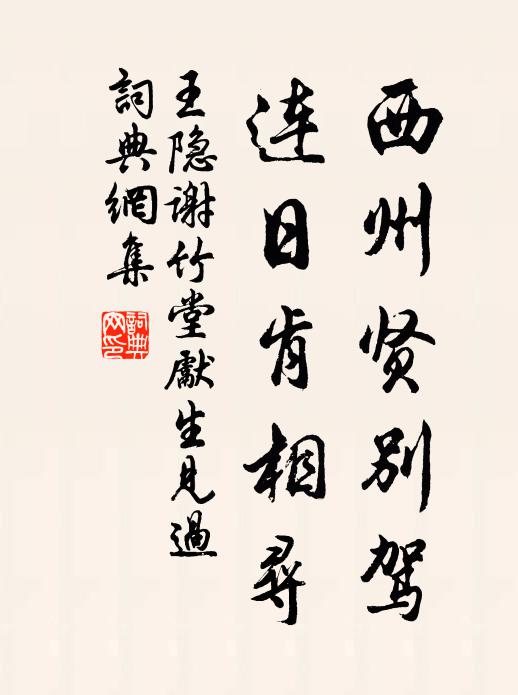 西州贤别驾
连日肯相寻
王隐谢竹堂獻生见過
詞典網集
詞典
网印